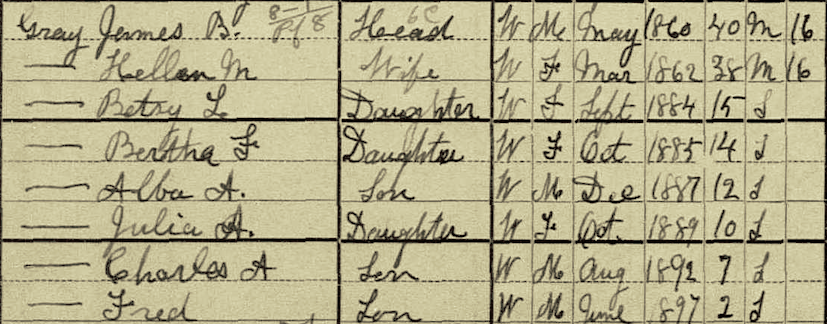 Gray James B. 8-1 Pf 8 Head 6C W M May 1860 40 M 16
— Hellen M Wife W F Mar 1862 38 M 16
— Betsy L Daughter W F Sept 1884 15 S
— Bertha F Daughter W F Oct 1885 14 S
— Alba A. Son W M Dec 1887 12 S
— Julia A. Daughter W F Oct. 1889 10 S
— Charles A Son W M Aug 1892 7 S
— Fred Son W M June 1897 2 S